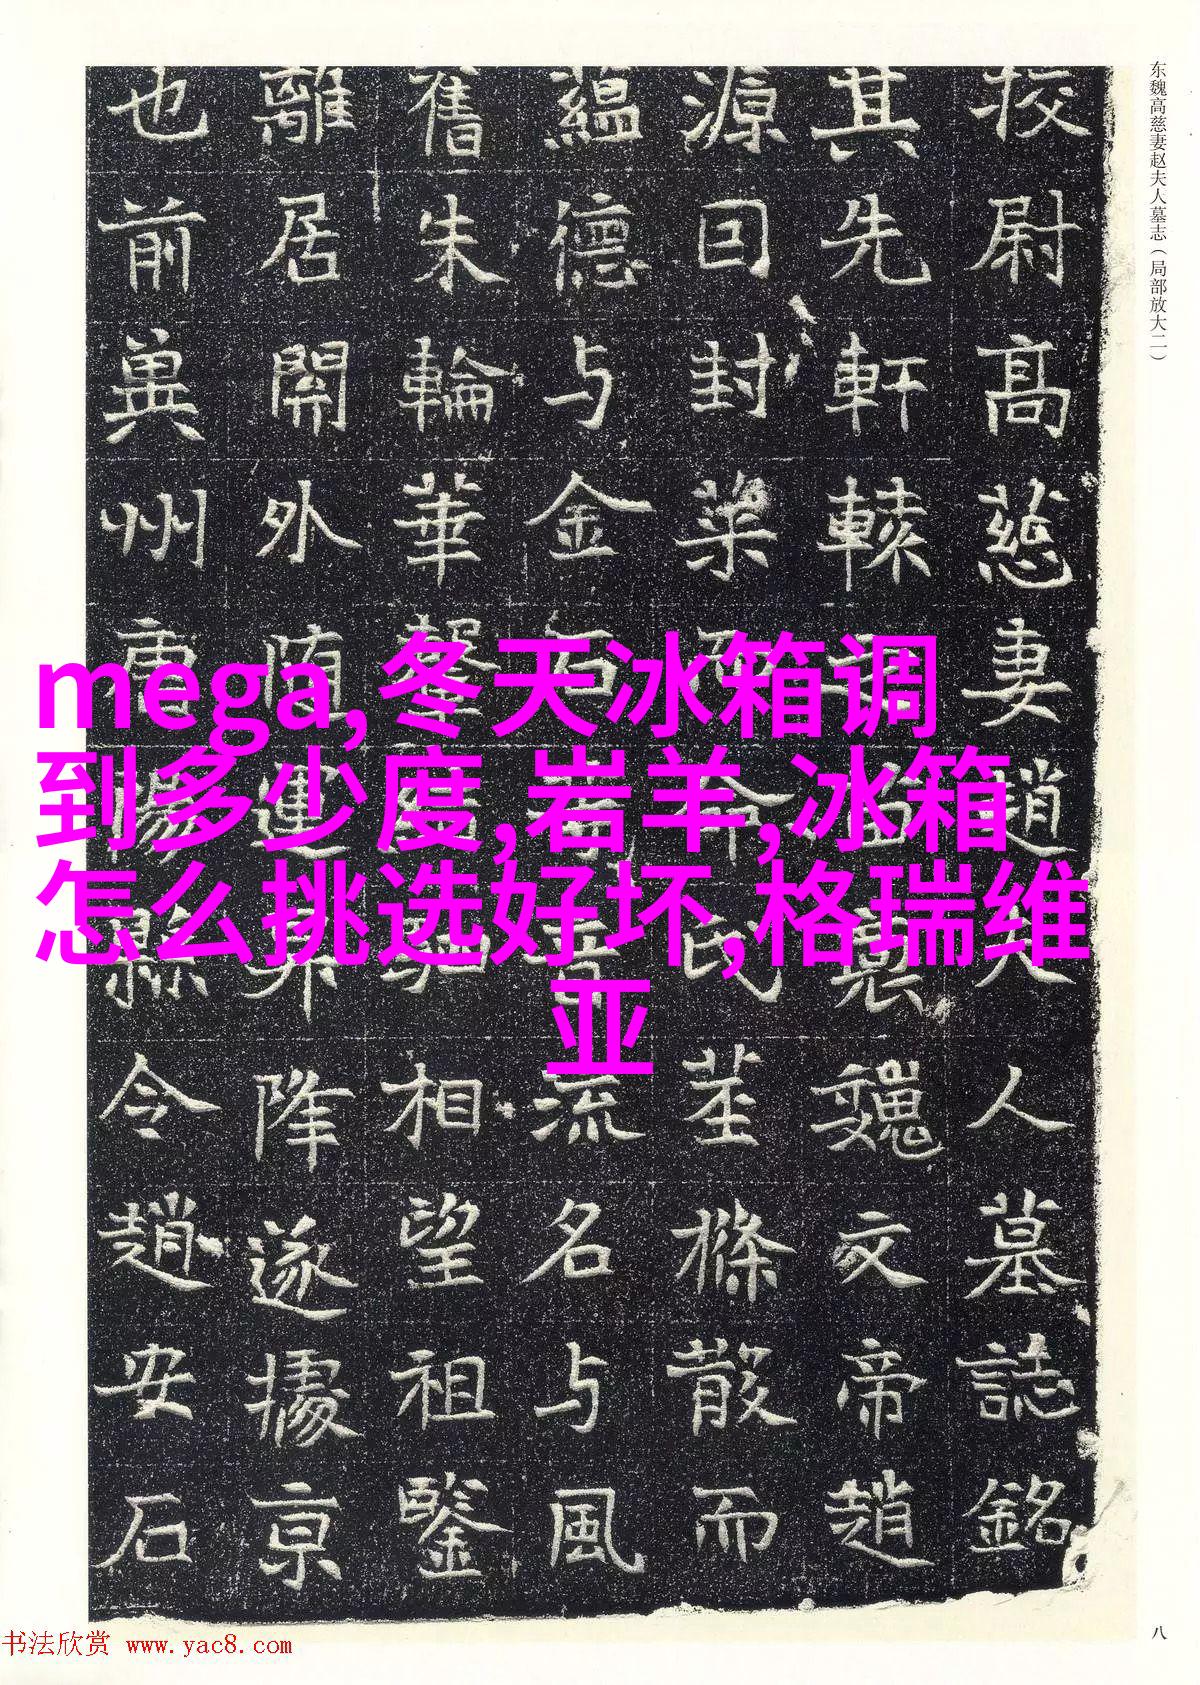 东魏高慈妻赵夫人墓志（局部放大二）
挍尉高慈妻趙夫人墓誌銘
其先軒轅之苗裔魏文帝趙
源囙封而命氏茎條散而
蘊德与金石音流名与風
舊朱輪華馳相望祖鑒
離居開外随運昇降遂據京
也前兾州陽縣令趙安石
mega,冬天冰箱调
到多少度,岩羊,冰箱
怎么挑选好坏,格瑞维
亚
八
书法欣赏 www.yac8.com